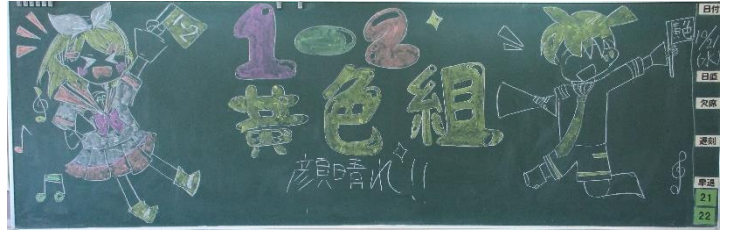 1-2
1-2
黄色組
顔晴れ!!
黄色
日付
(水)
日直
欠席
遅刻
早退
21
22